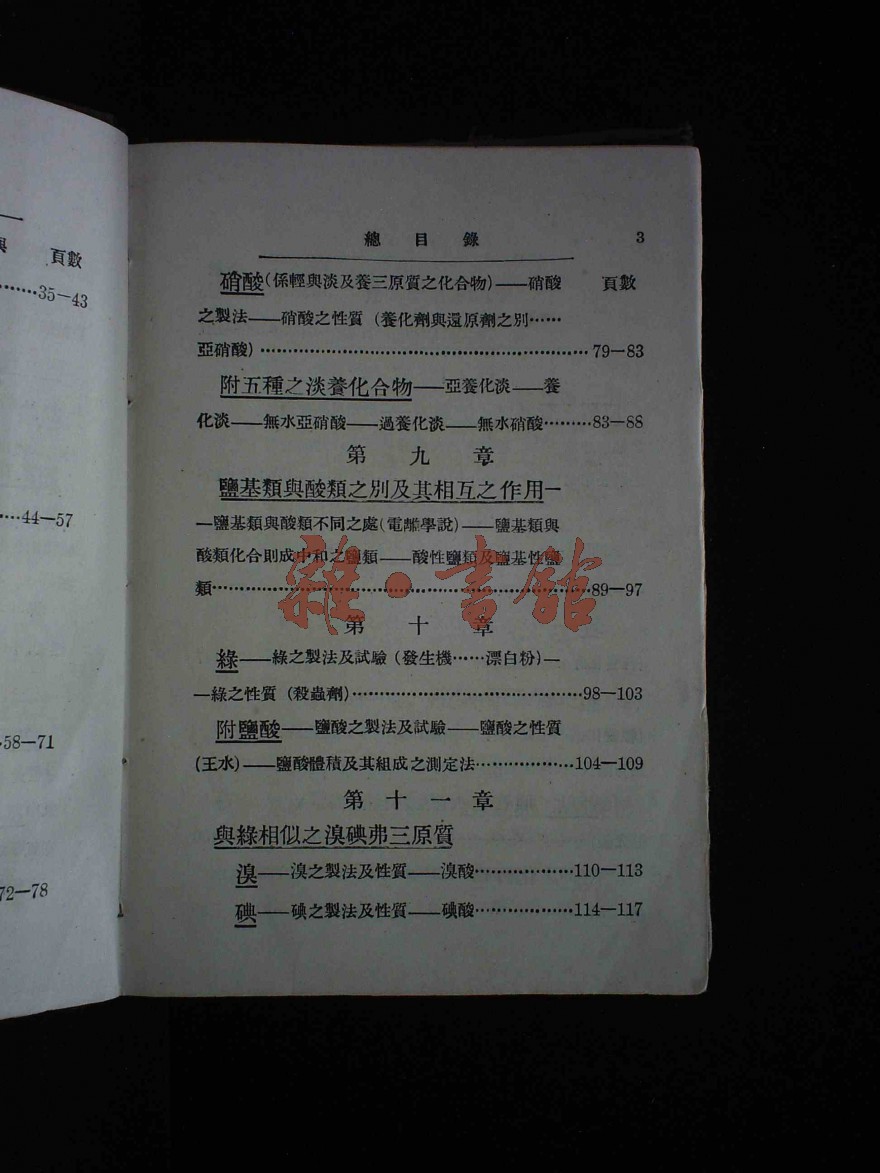 頁數
35—43
44—57
58—71
72—78
總目錄 3
硝酸(係輕與淡及養三原質之化合物)——硝酸 頁數
之製法——硝酸之性質(養化劑與還原劑之別……
亞硝酸)……79—83
附五種之淡養化合物——亞養化淡——養
化淡——無水亞硝酸——過養化淡——無水硝酸………83—88
第九章
鹽基類與酸類之別及其相互之作用—
—鹽基類與酸類不同之處(電離學說)——鹽基類與
酸類化合則成中和之鹽類——酸性鹽類及鹽基性鹽
類……89—97
雜·書館
第十章
綠——綠之製法及試驗(發生機……漂白粉)—
—綠之性質(殺蟲劑)……98—103
附鹽酸——鹽酸之製法及試驗——鹽酸之性質
(王水)——鹽酸體積及其組成之測定法……104—109
第十一章
與綠相似之溴碘弗三原質
溴——溴之製法及性質——溴酸……110—113
碘——碘之製法及性質——碘酸……114—117